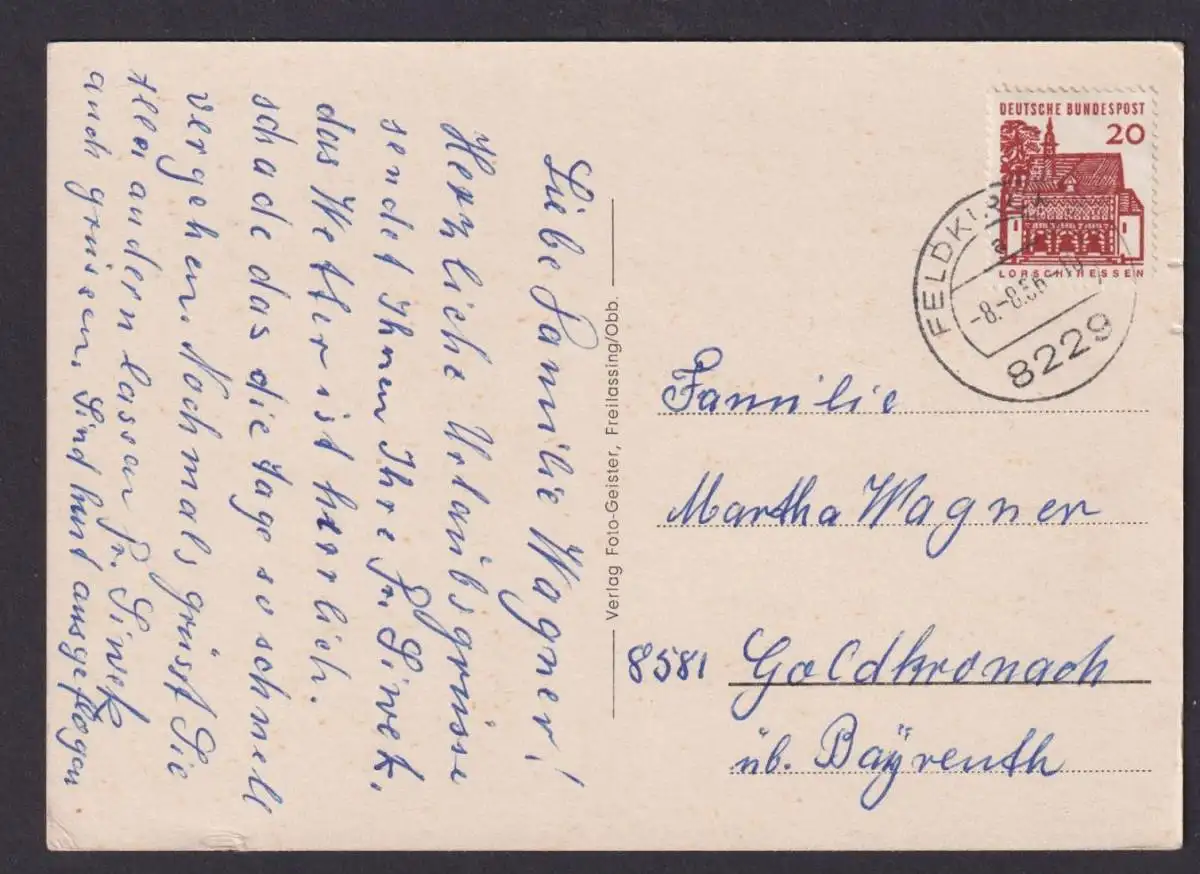 Liebe Familie Wagner!
Herrliche Urlaubsgrüsse
sendet Ihnen Ihre Fr. Siwek,
das Wetter ist herrlich.
schade das die Tage so schnell
vergehen. Nochmals grüsst Sie
andern lassen Fr. Siwek
auch grüssen. Sind ausgeflogen
Verlag Foto-Geister, Freilassing/Obb.
DEUTSCHE BUNDESPOST
20
LORSCH/HESSEN
-8.-8.66
8229
Familie
Martha Wagner
8581 Goldkronach
üb. Bayreuth